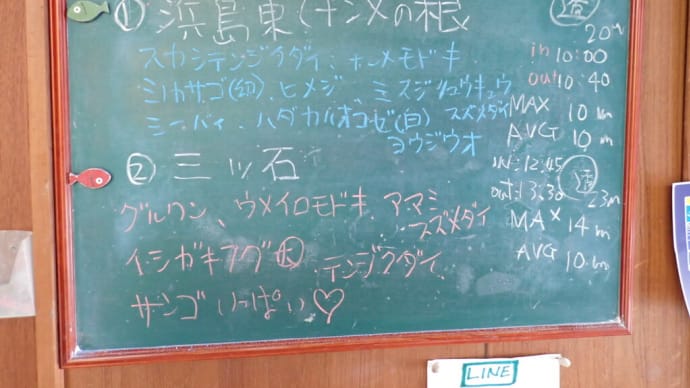 ① 浜島東(ナンメの根
スカシテンジクダイ、ホンメモドキ
ミノカサゴ(幼)、ヒメジ、ミスジリュウキュウ
スズメダイ
ミーバイ、ハダカハオコゼ(白)
ヨウジウオ
20m
in 10:00
out 10:40
MAX 10m
AVG 10m
② 三ッ石
グルクン、ウメイロモドキ アマミ
スズメダイ
イシガキフグ(大) テンジクダイ、
サンゴ いっぱい♡
IN:12:45
out:13:30
23m
MAX 14m
AVG 10m
LINE